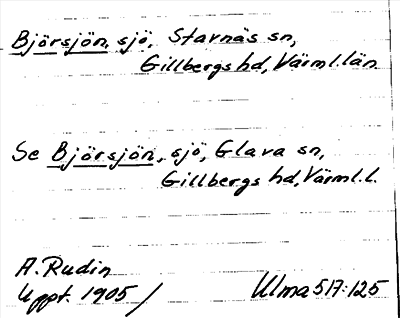 Björsjön, sjö, Stavnäs sn,
Gillbergs hd, Värml. län
Se Björsjön, sjö, Glava sn,
Gillbergs hd, Värml. l.
A. Rudin
Uppt. 1905 /
Ulma 517:125